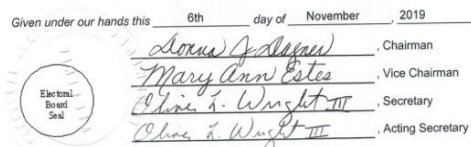 Given under our hands this 6th day of November, 2019
Donna J Dagner, Chairman
Mary Ann Estes, Vice Chairman
Oliver L. Wright III, Secretary
Oliver L. Wright III, Acting Secretary
Electoral
Board
Seal